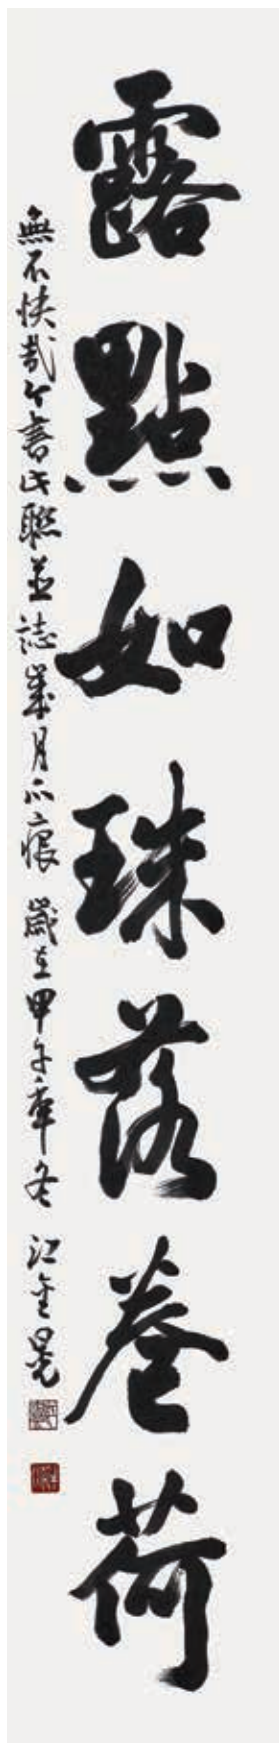 露點如珠落卷荷
無不快哉今書此聯並誌歲月以痕 歲在甲午年冬 江金晃